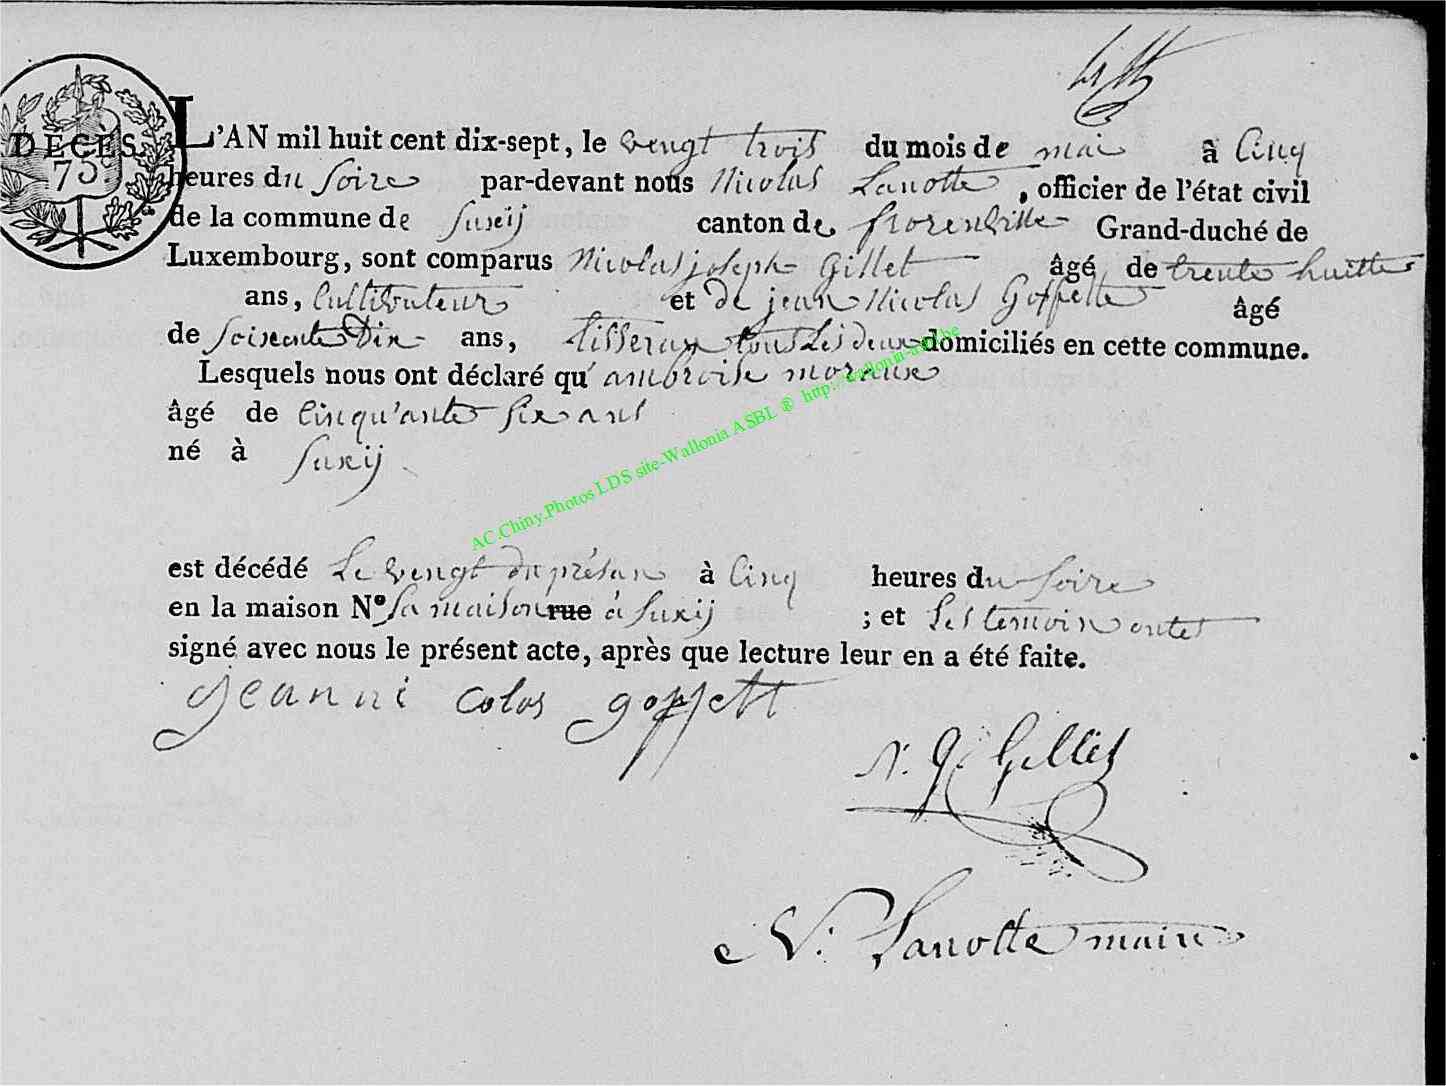 DÉCÈS.
75
L'AN mil huit cent dix-sept, le vengt trois du mois de mai à Cinq
heures du Soire par-devant nous Nicolas Lanotte, officier de l'état civil
de la commune de Suxij canton de florenville Grand-duché de
Luxembourg, sont comparus Nicolas joseph Gillet âgé de trente huitte
ans, Cultivuteur et de jean Nicolas Goffette âgé
de Soisente Dix ans, tisseran tous Les deux domiciliés en cette commune.
Lesquels nous ont déclaré qu' ambroise moraux
âgé de Cinqu'ante six ans
né à Suxij
AC.Chiny.Photos LDS site-Wallonia ASBL ® http://wallonia-asbl.be
est décédé Le vengt du présan à Cinq heures du Soire
en la maison N° Sa maison rue à Suxij ; et Les temoin ontet
signé avec nous le présent acte, après que lecture leur en a été faite.
jeanni colas goffett
N. J. Gillet
N. Lanotte maire